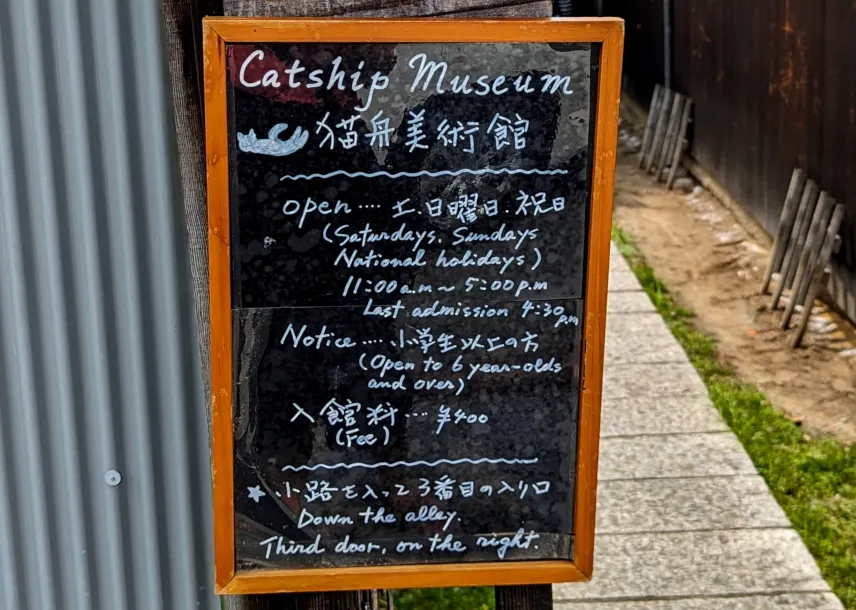 Catship Museum
猫舟美術館
open .... 土.日曜日.祝日
(Saturdays. Sundays
National holidays)
11:00 a.m ~ 5:00 p.m
Last admission 4:30 p.m
Notice .... 小学生以上の方
(Open to 6 year-olds
and over)
入館料 ... ¥400
(Fee)
★ 小路を入って3番目の入り口
Down the alley.
Third door, on the right.